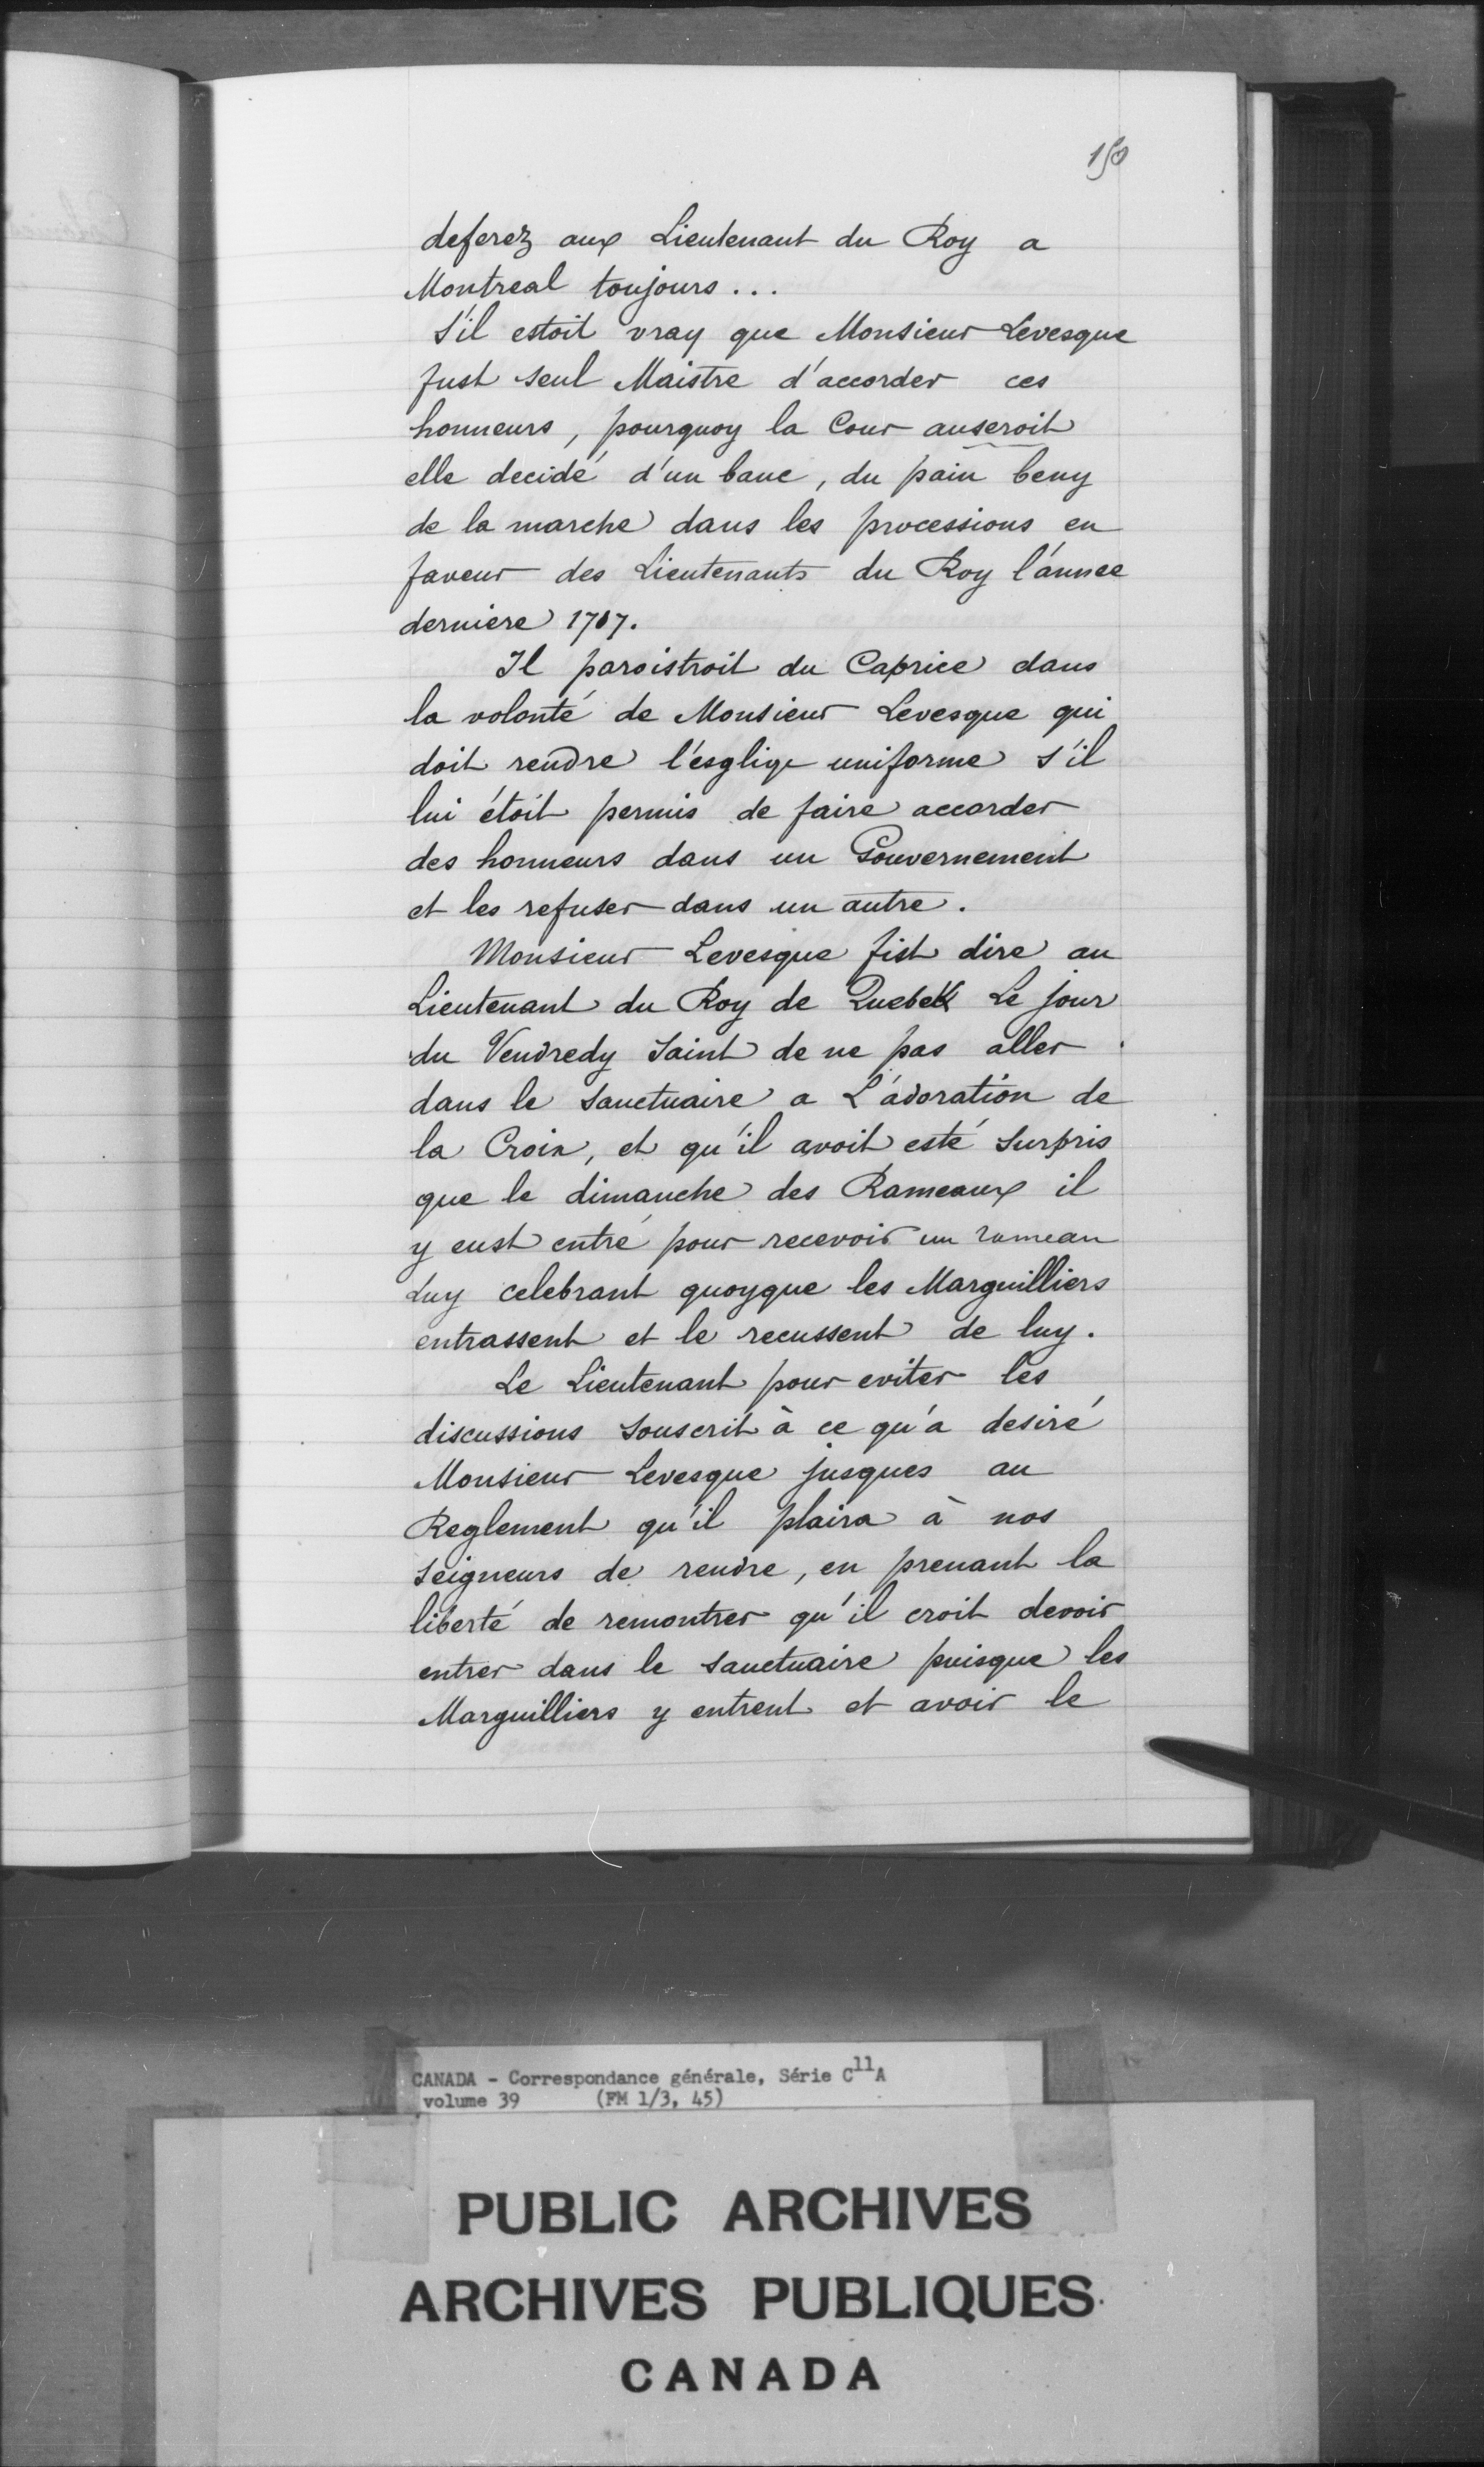 150
deferez aux Lieutenant du Roy a
Montreal toujours...
S'il estoit vray que Monsieur Levesque
fust seul Maistre d'accorder ces
honneurs, pourquoy la Cour auseroit
elle decidé d'un banc, du pain beny
de la marche dans les processions en
faveur des Lieutenants du Roy l'année
derniere 1717.
Il paroistroit du Caprice dans
la volonté de Monsieur Levesque qui
doit rendre l'esglige uniforme s'il
lui étoit permis de faire accorder
des honneurs dans un Gouvernement
et les refuser dans un autre.
Monsieur Levesque fist dire au
Lieutenant du Roy de Quebek Le jour
du Vendredy Saint de ne pas aller
dans le Sanctuaire a L'adoration de
la Croix, et qu'il avoit esté surpris
que le dimanche des Rameaux il
y eust entré pour recevoir un rameau
Luy celebrant quoyque les Marguilliers
entrassent et le recussent de luy.
Le Lieutenant pour eviter les
discussions souscrit à ce qu'a desiré
Monsieur Levesque jusques au
Reglement qu'il plaira à nos
seigneurs de rendre, en prenant la
liberté de remontrer qu'il croit devoir
entrer dans le sanctuaire puisque les
Marguilliers y entrent et avoir le
CANADA - Correspondance générale, Série C11A
volume 39 (FM 1/3, 45)
PUBLIC ARCHIVES
ARCHIVES PUBLIQUES
CANADA